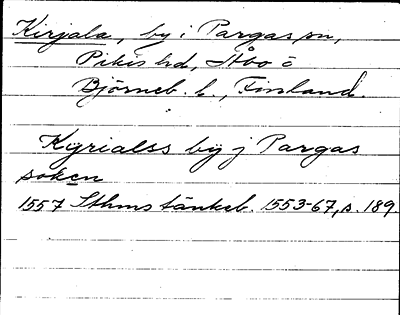 Kirjala, by i Pargas sn,
Pikis hd, Åbo o
Björneb. l., Finland.
Kyrialss by j Pargas
soken
1557 Sthms tänkeb. 1553-67, s. 189.